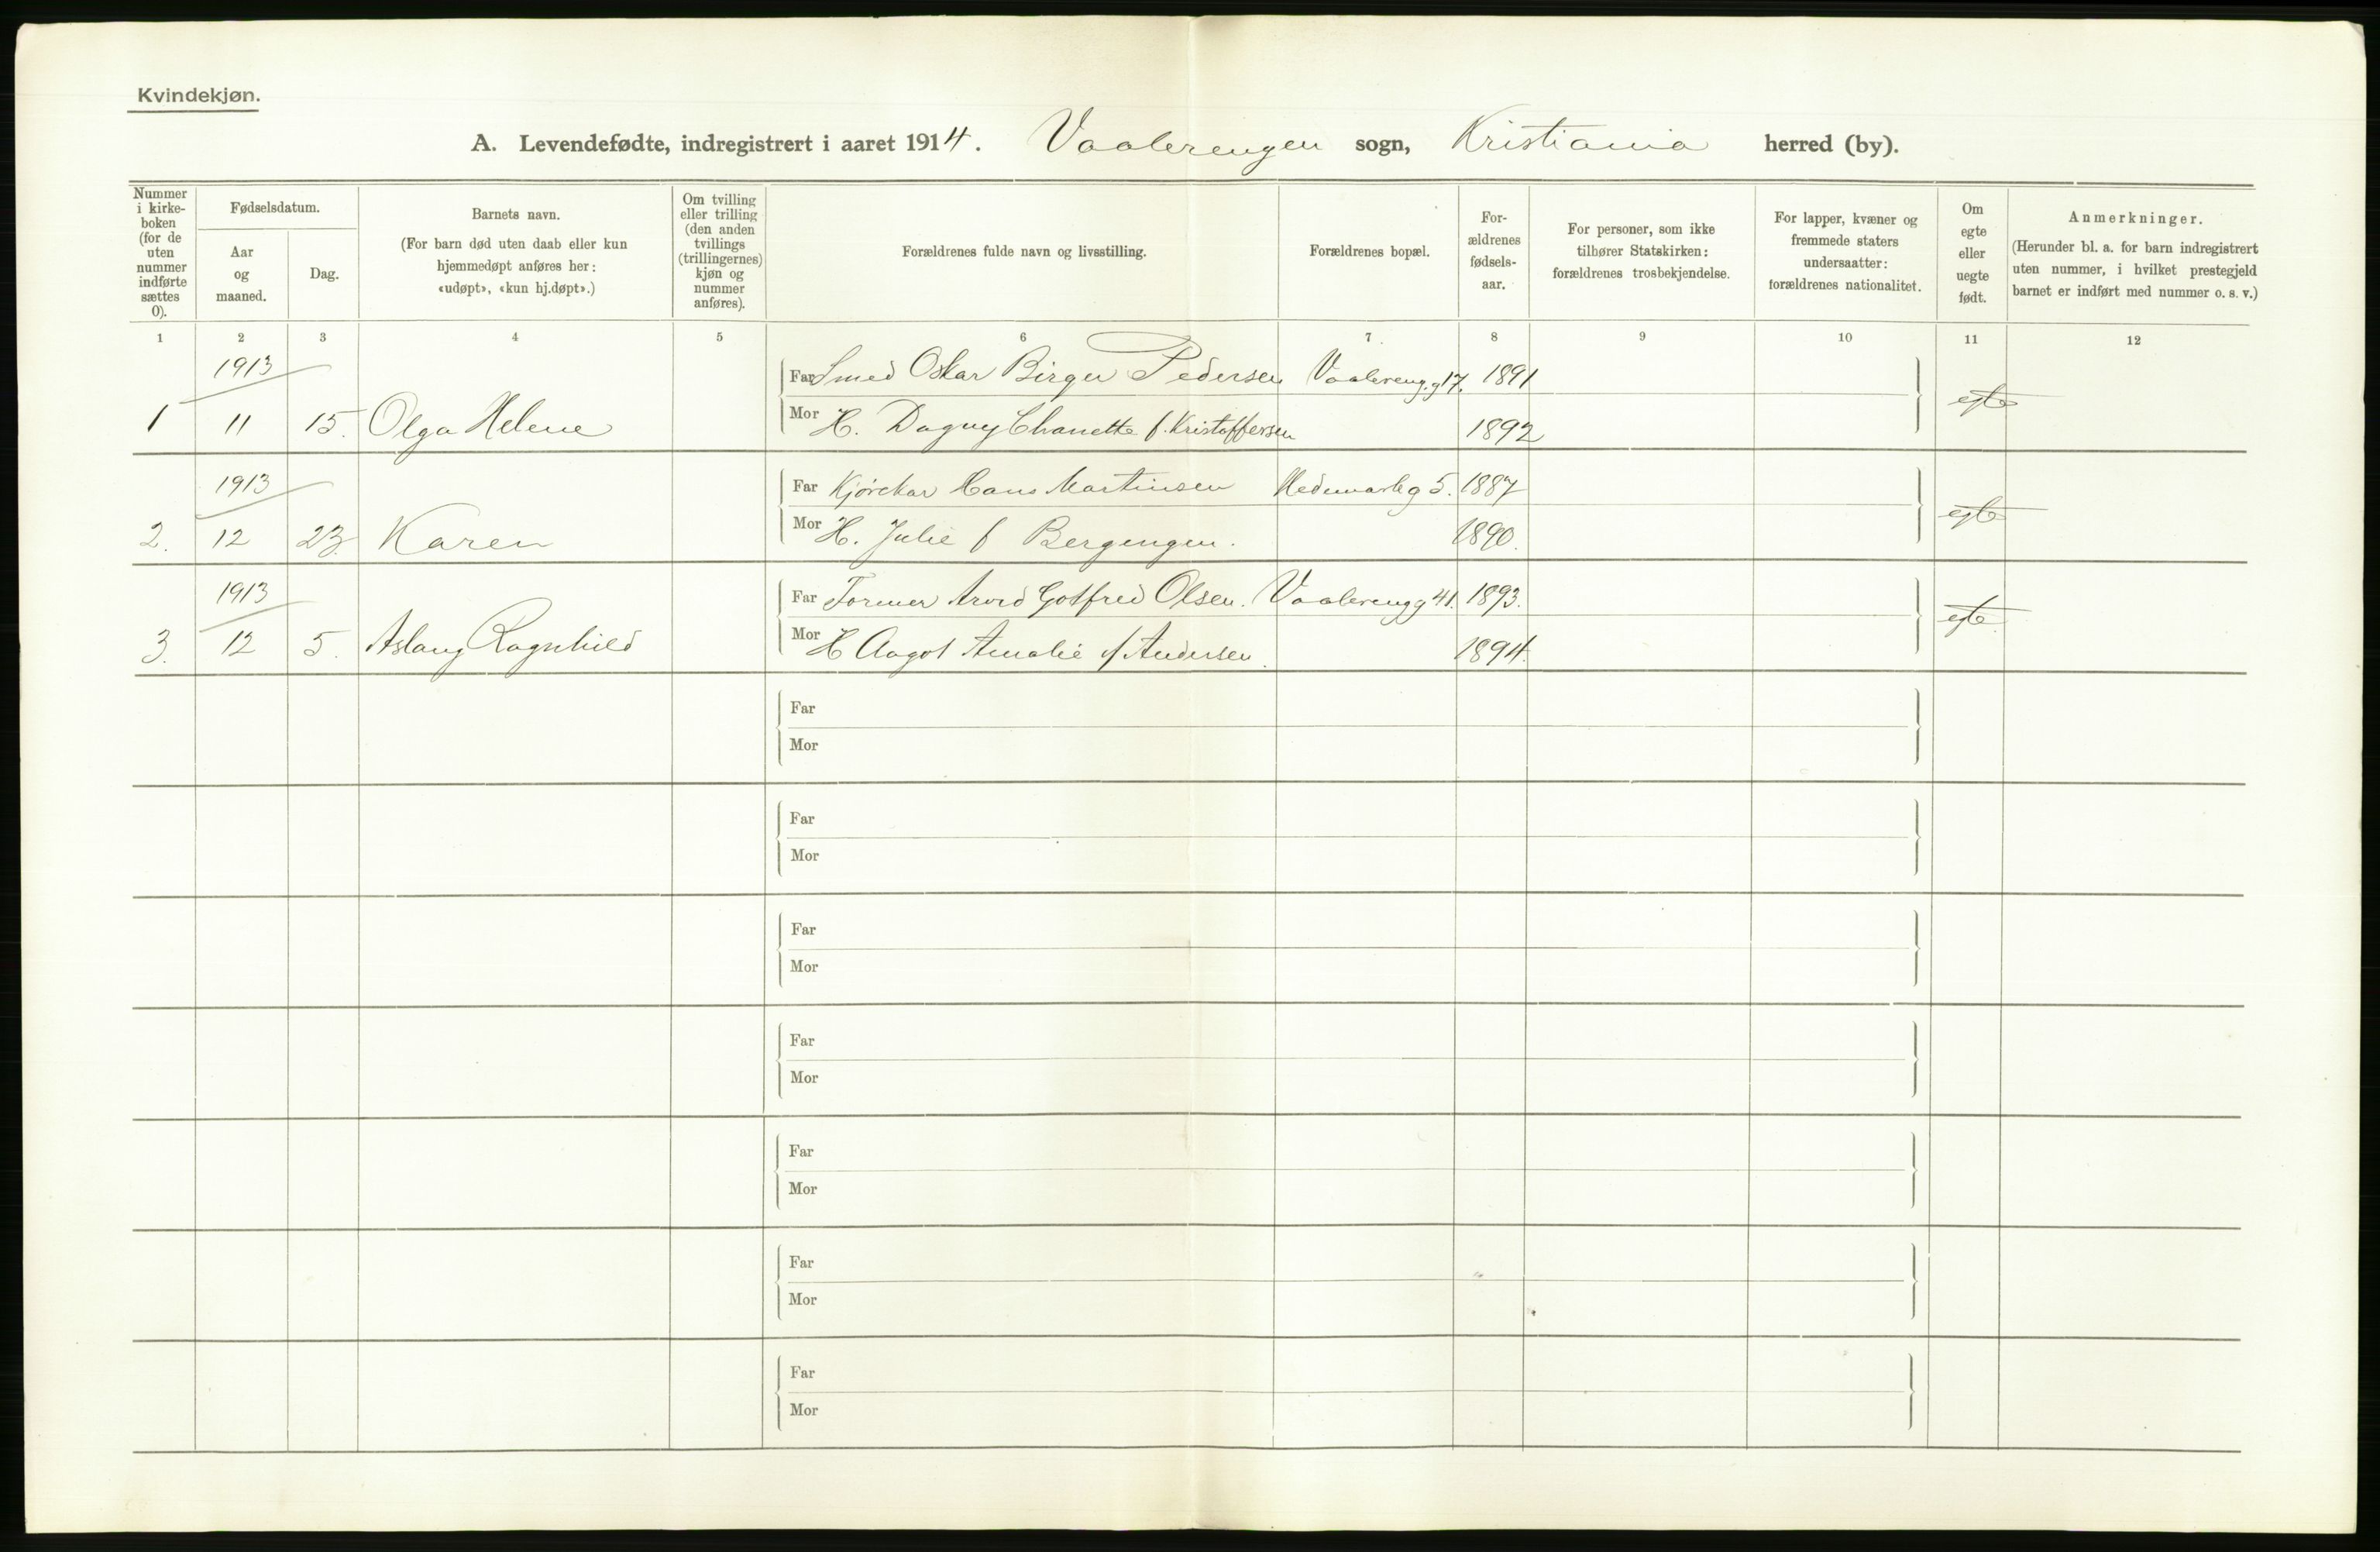 Kvindekjøn.
A. Levendefødte, indregistrert i aaret 1914. Vaalerengen sogn, Kristiania herred (by).
Nummer i kirkeboken (for de uten nummer indførte sættes 0).
Fødselsdatum.
Aar og maaned.
Dag.
Barnets navn.
(For barn død uten daab eller kun hjemmedøpt anføres her: «udøpt», «kun hj.døpt».)
Om tvilling eller trilling (den anden tvillings (trillingernes) kjøn og nummer anføres).
Forældrenes fulde navn og livsstilling.
Forældrenes bopæl.
Forældrenes fødselsaar.
For personer, som ikke tilhører Statskirken: forældrenes trosbekjendelse.
For lapper, kvæner og fremmede staters undersaatter: forældrenes nationalitet.
Om egte eller uegte født.
Anmerkninger.
(Herunder bl. a. for barn indregistrert uten nummer, i hvilket prestegjeld barnet er indført med nummer o. s. v.)
1 2 3 4 5 6 7 8 9 10 11 12
1913
Far Smed Oskar Birger Pedersen Vaalereng.g 17. 1891
egte
1 11 15. Olga Helene
Mor H. Dagny Chanette f. Kristoffersen 1892
1913
Far Kjørekar Hans Martinsen Hedemarkg 5. 1887
egte
2. 12 23. Karen
Mor H. Julie f Bergengen. 1890.
1913
Far Former Arvid Gotfred Olsen. Vaalerengg 41. 1893.
egte
3. 12 5. Aslaug Ragnhild
Mor H Aagot Amalie f Andersen. 1894.
Far
Mor
Far
Mor
Far
Mor
Far
Mor
Far
Mor
Far
Mor
Far
Mor